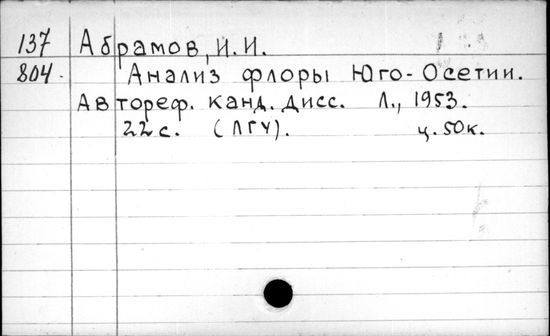 137 Абрамов, И.И.
804. Анализ флоры Юго-Осетии.
Автореф. канд. дисс. Л., 1953.
22 с. (ЛГУ). ц. 50к.